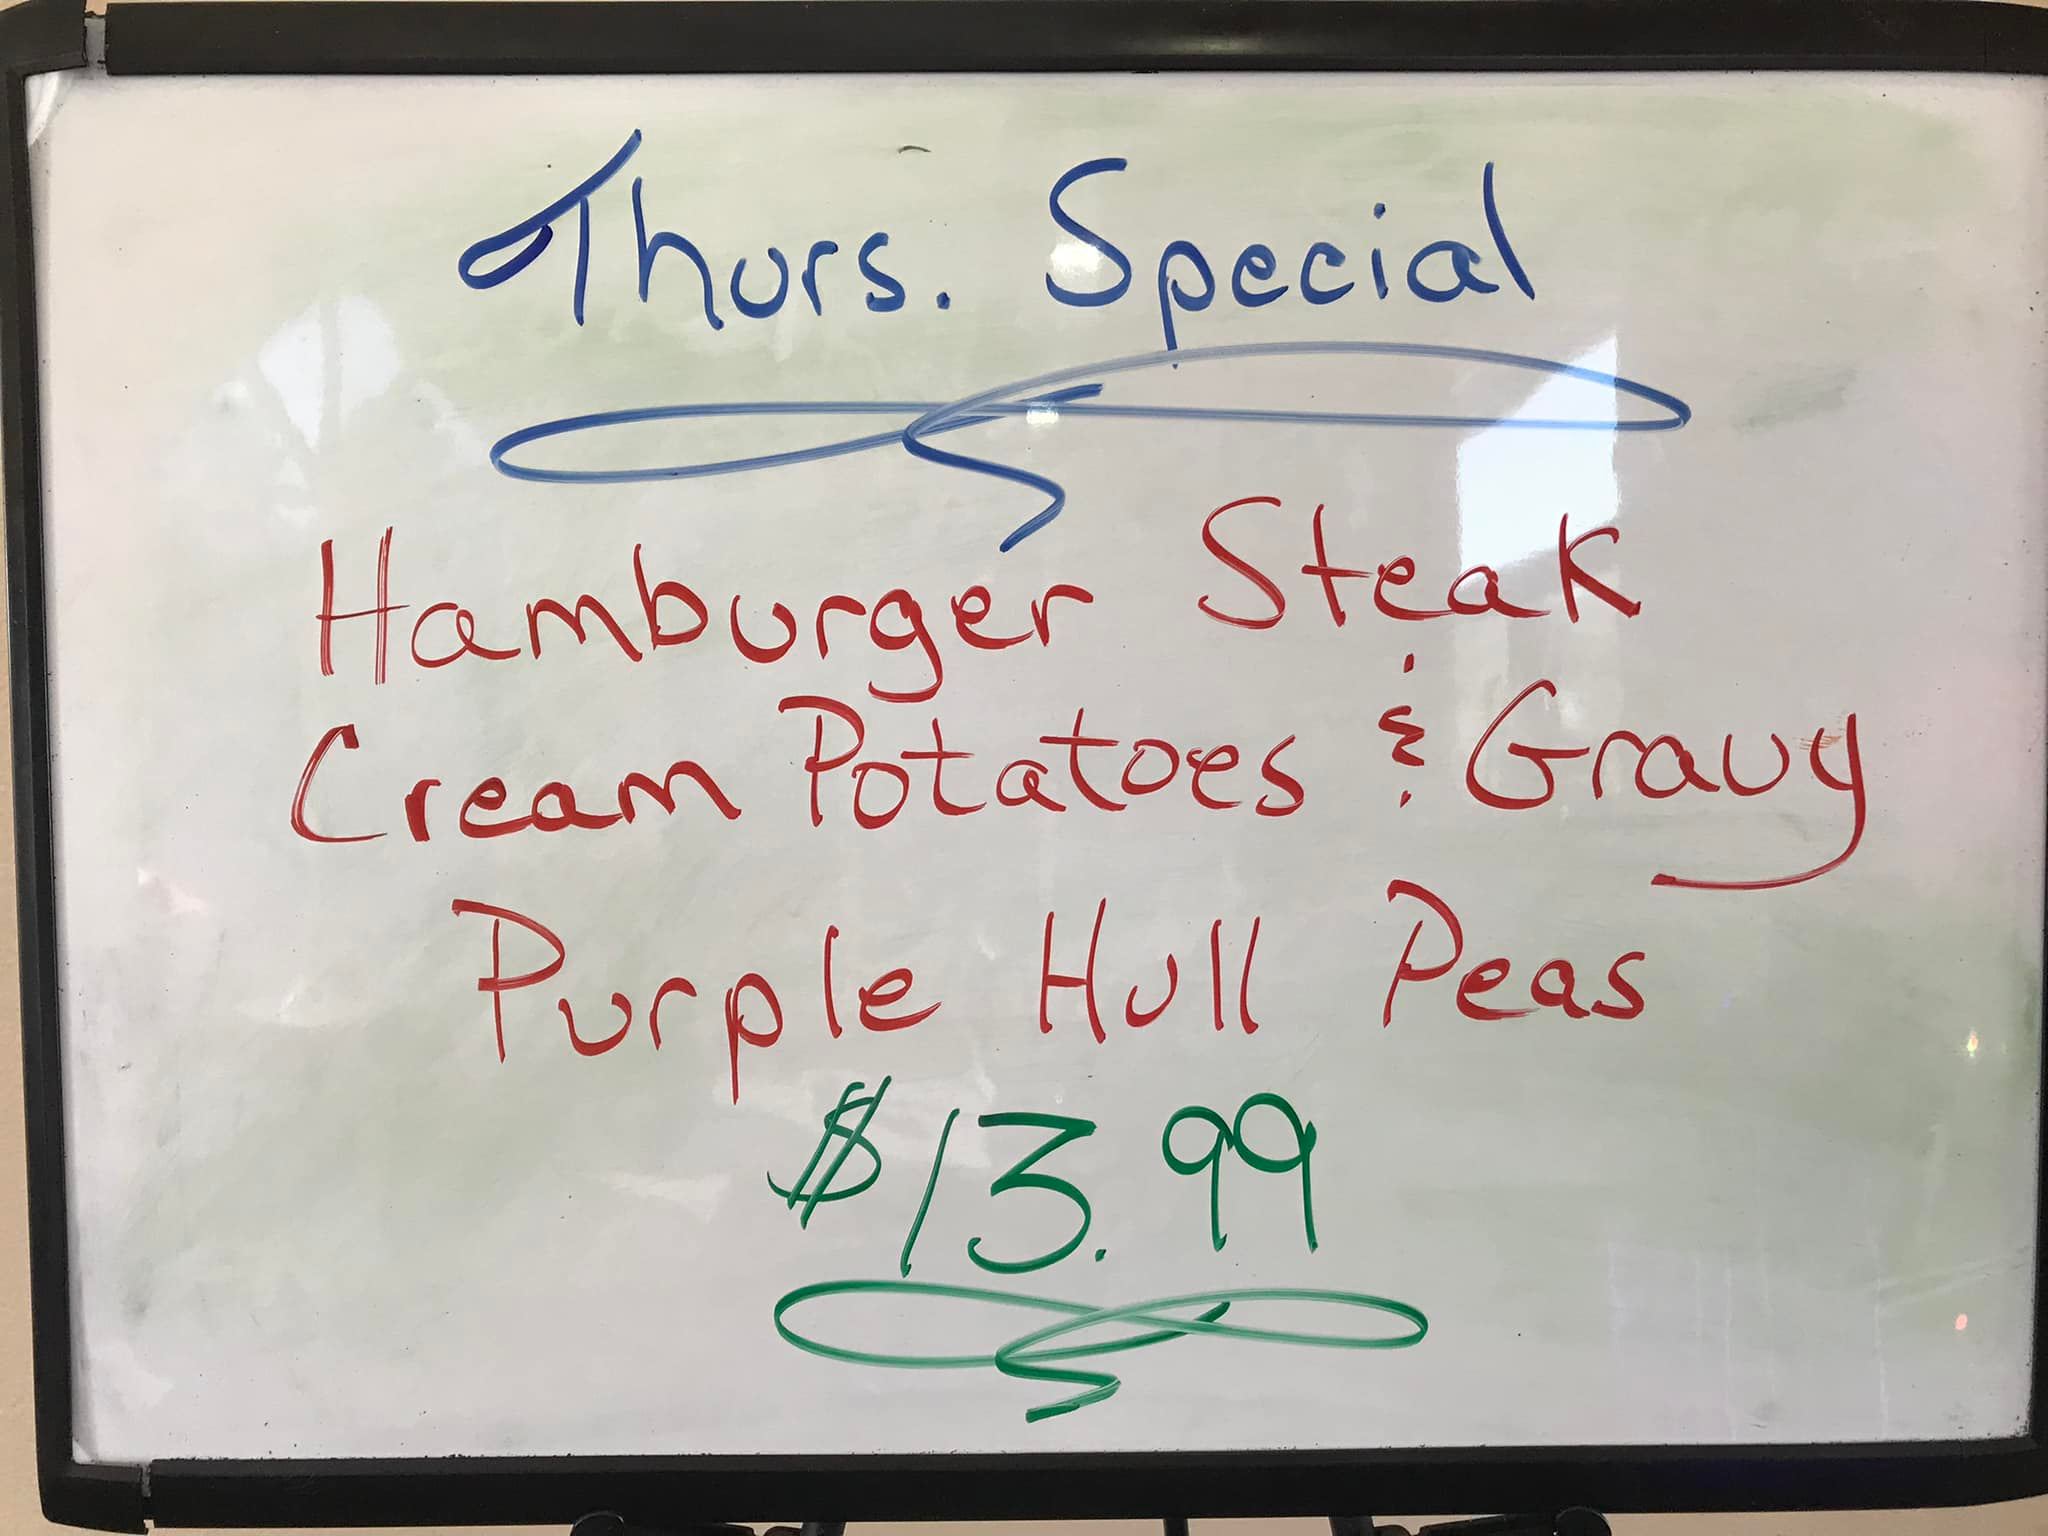 Thurs. Special
Hamburger Steak
Cream Potatoes & Gravy
Purple Hull Peas
$13.99